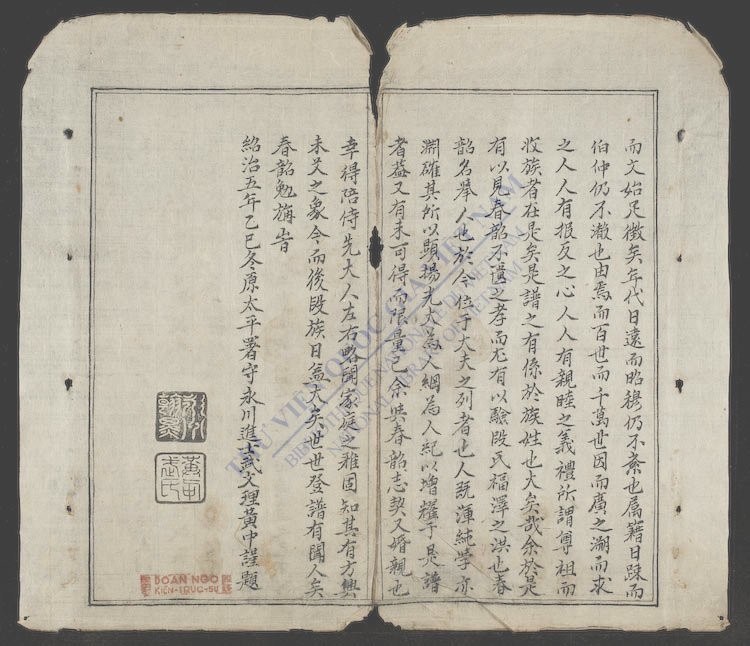 而文始足徵矣年代日遠而昭穆仍不紊也属籍日疎而
伯仲仍不澈也由焉而百世而千萬世因而廣之溯而求
之人人有报反之心人人有親睦之義禮所謂尊祖而
收族者在是矣是譜之有係於族姓也大矣哉余於是
有以見春韶不匱之孝而尤有以驗段氏福澤之洪也春
韶名舉人也於今位于大夫之列者也人既渾純學亦
淵確其所以顯揚光大為人綱為人紀以增耀于是譜
者蓋又有未可得而限量已余與春韶志契又婚親也
幸得陪侍先大人左右略聞家庭之雅固知其有方興
未艾之象今而後段族日益大矣世世登譜有聞人矣
春韶勉旃旹
紹治五年乙巳冬原太平署守永川進士武文理黃中謹題
THƯ VIỆN QUỐC GIA VIỆT NAM
BIBLIOTHÈQUE NATIONALE DU VIETNAM
NATIONAL LIBRARY OF VIETNAM
DOÀN NGÔ
KIẾN-TRÚC-SƯ